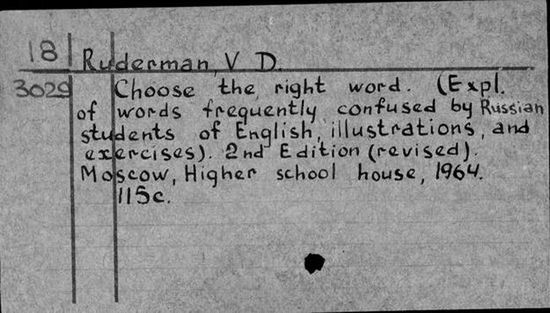 18 Ruderman, V. D.
3029 Choose the right word. (Expl.
of words frequently confused by Russian
students of English, illustrations, and
exercises). 2nd Edition (revised).
Moscow, Higher school house, 1964.
115c.